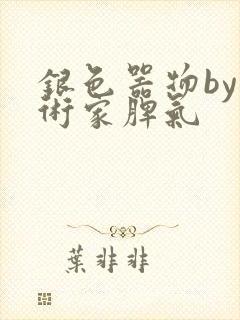 銀色器物by
術家脾氣
葉非非